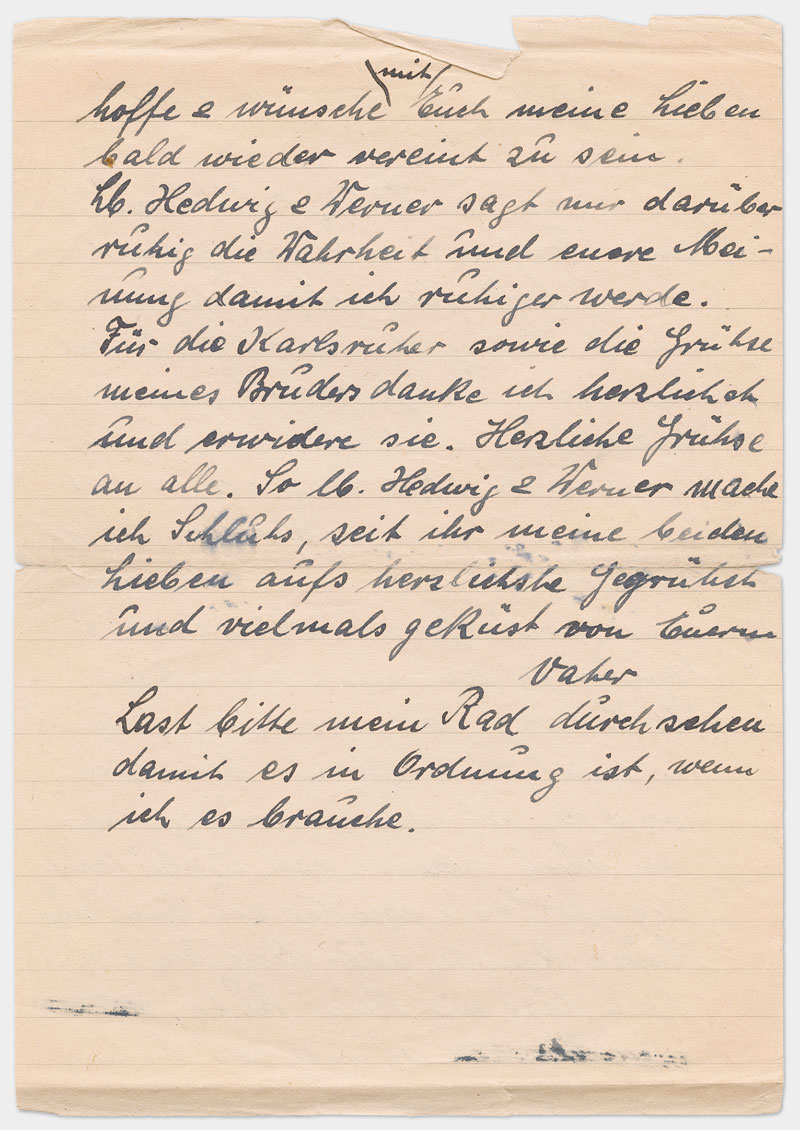 hoffe & wünsche mit Euch meine Lieben
bald wieder vereint zu sein.
Lb. Hedwig & Werner sagt mir darüber
ruhig die Wahrheit und euere Mei-
nung damit ich ruhiger werde.
Für die Karlsruher sowie die Grühse
meines Bruders danke ich herzlichch
und erwidere sie. Herzliche Grühse
an alle. So lb. Hedwig & Werner mache
ich Schluhs, seit ihr meine beiden
Lieben aufs herzlichste Gegrühst
und vielmals geküst von Euerm
Vater
Last bitte mein Rad durchsehen
damit es in Ordnung ist, wenn
ich es brauche.